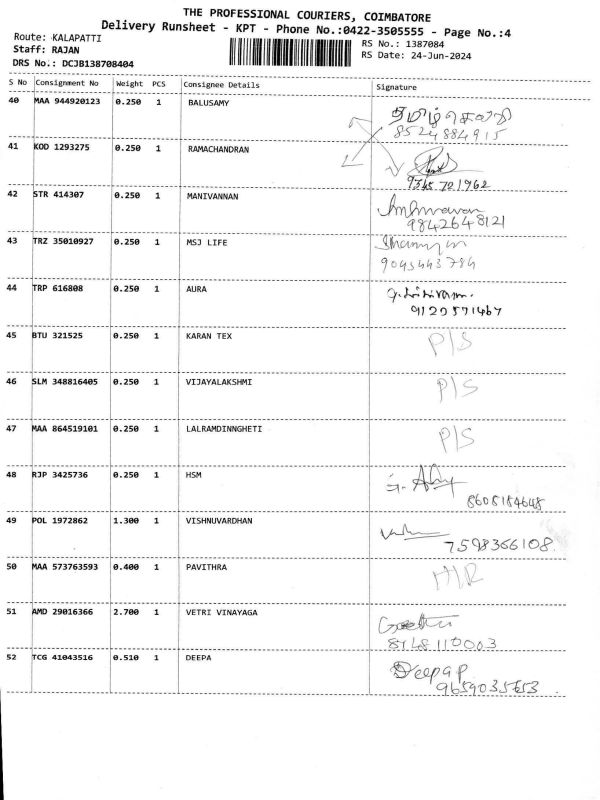 THE PROFESSIONAL COURIERS, COIMBATORE
Delivery Runsheet - KPT - Phone No.:0422-3505555 - Page No.:4
Route: KALAPATTI
Staff: RAJAN
DRS No.: DCJB138708404
RS No.: 1387084
RS Date: 24-Jun-2024
S No Consignment No Weight PCS Consignee Details Signature
40 MAA 944920123 0.250 1 BALUSAMY
8524884915
41 KOD 1293275 0.250 1 RAMACHANDRAN
9345701962
42 STR 414307 0.250 1 MANIVANNAN
9842648121
43 TRZ 35010927 0.250 1 MSJ LIFE
44 TRP 616808 0.250 1 AURA
45 BTU 321525 0.250 1 KARAN TEX P/S
46 SLM 348816405 0.250 1 VIJAYALAKSHMI P/S
47 MAA 864519101 0.250 1 LALRAMDINNGHETI P/S
48 RJP 3425736 0.250 1 HSM
49 POL 1972862 1.300 1 VISHNUVARDHAN
7598366108
50 MAA 573763593 0.400 1 PAVITHRA
51 AMD 29016366 2.700 1 VETRI VINAYAGA
52 TCG 41043516 0.510 1 DEEPA Deepa P
9659035653